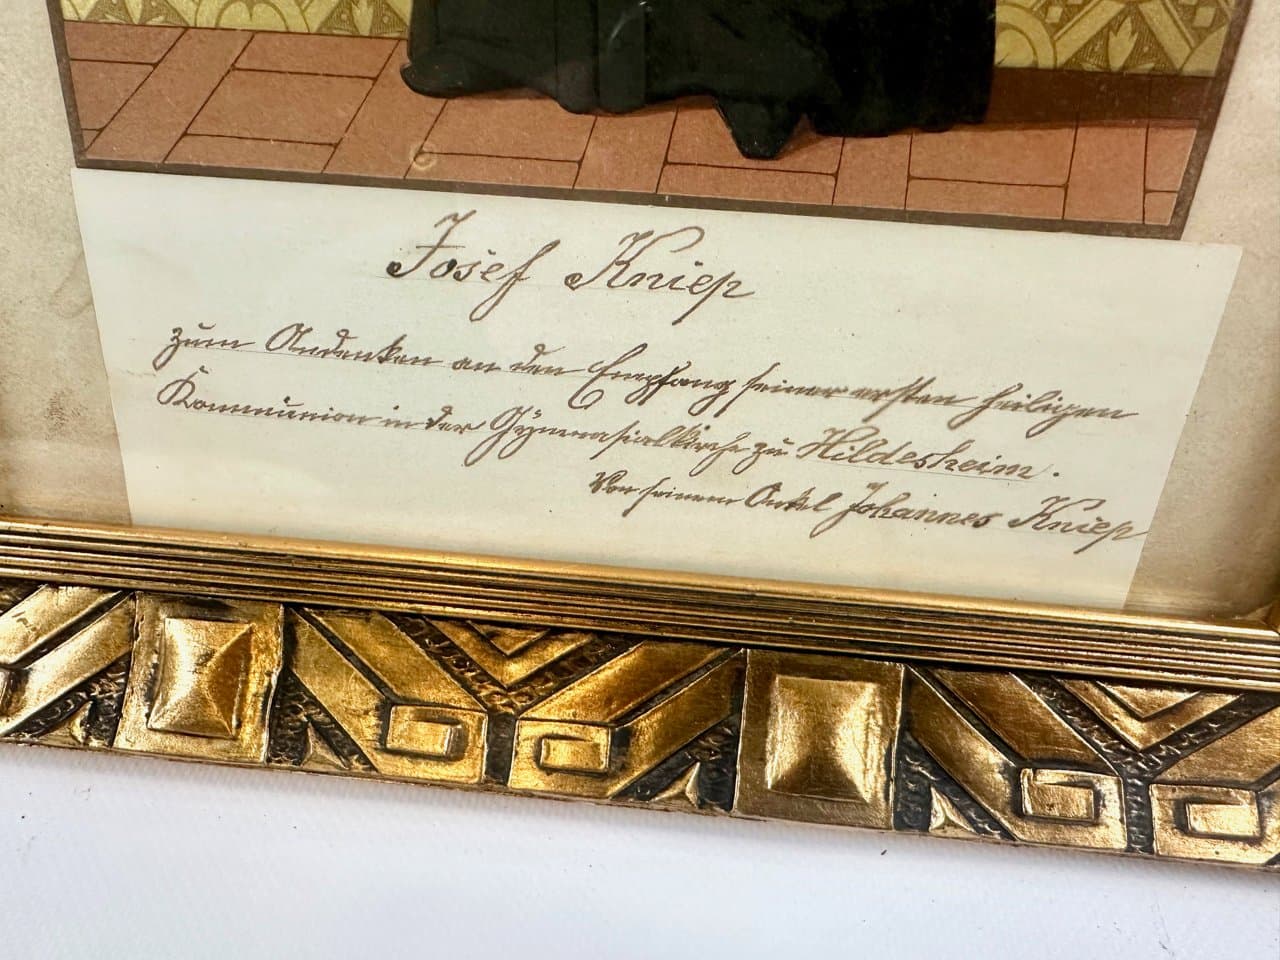 Josef Kniep
zum Andenken an den Empfang seiner ersten heiligen
Kommunion in der Gymnasialkirche zu Hildesheim.
Von seinem Onkel Johannes Kniep